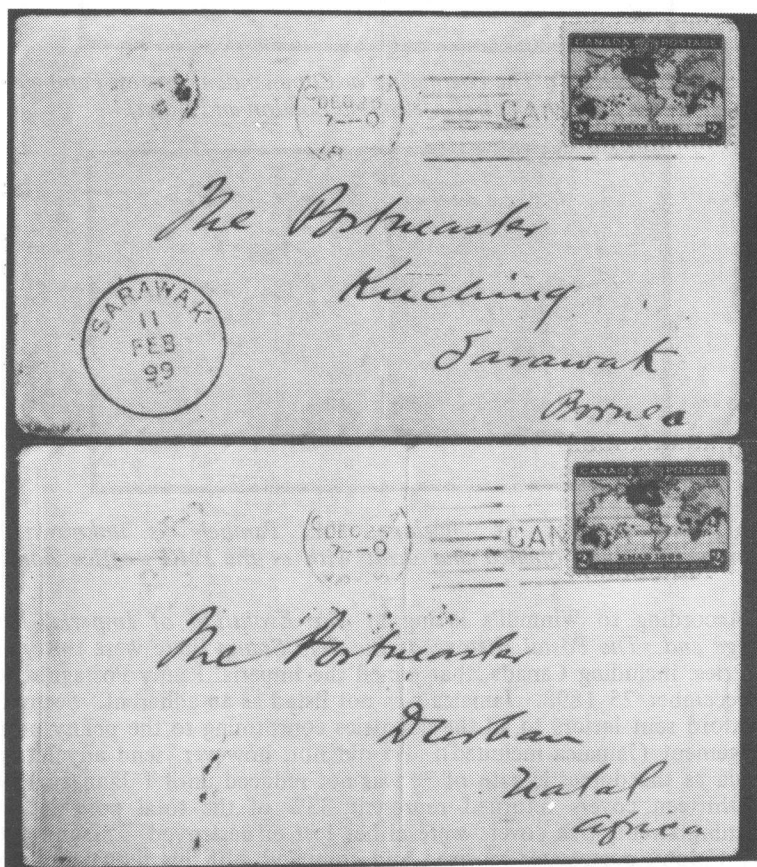 CANADA POSTAGE
XMAS 1898
2 2
DE 25
7—0
CAN
The Postmaster
Kuching
Sarawak
Borneo
SARAWAK
11
FEB
99
CANADA POSTAGE
XMAS 1898
2 2
DE 25
7—0
CAN
The Postmaster
Durban
Natal
Africa